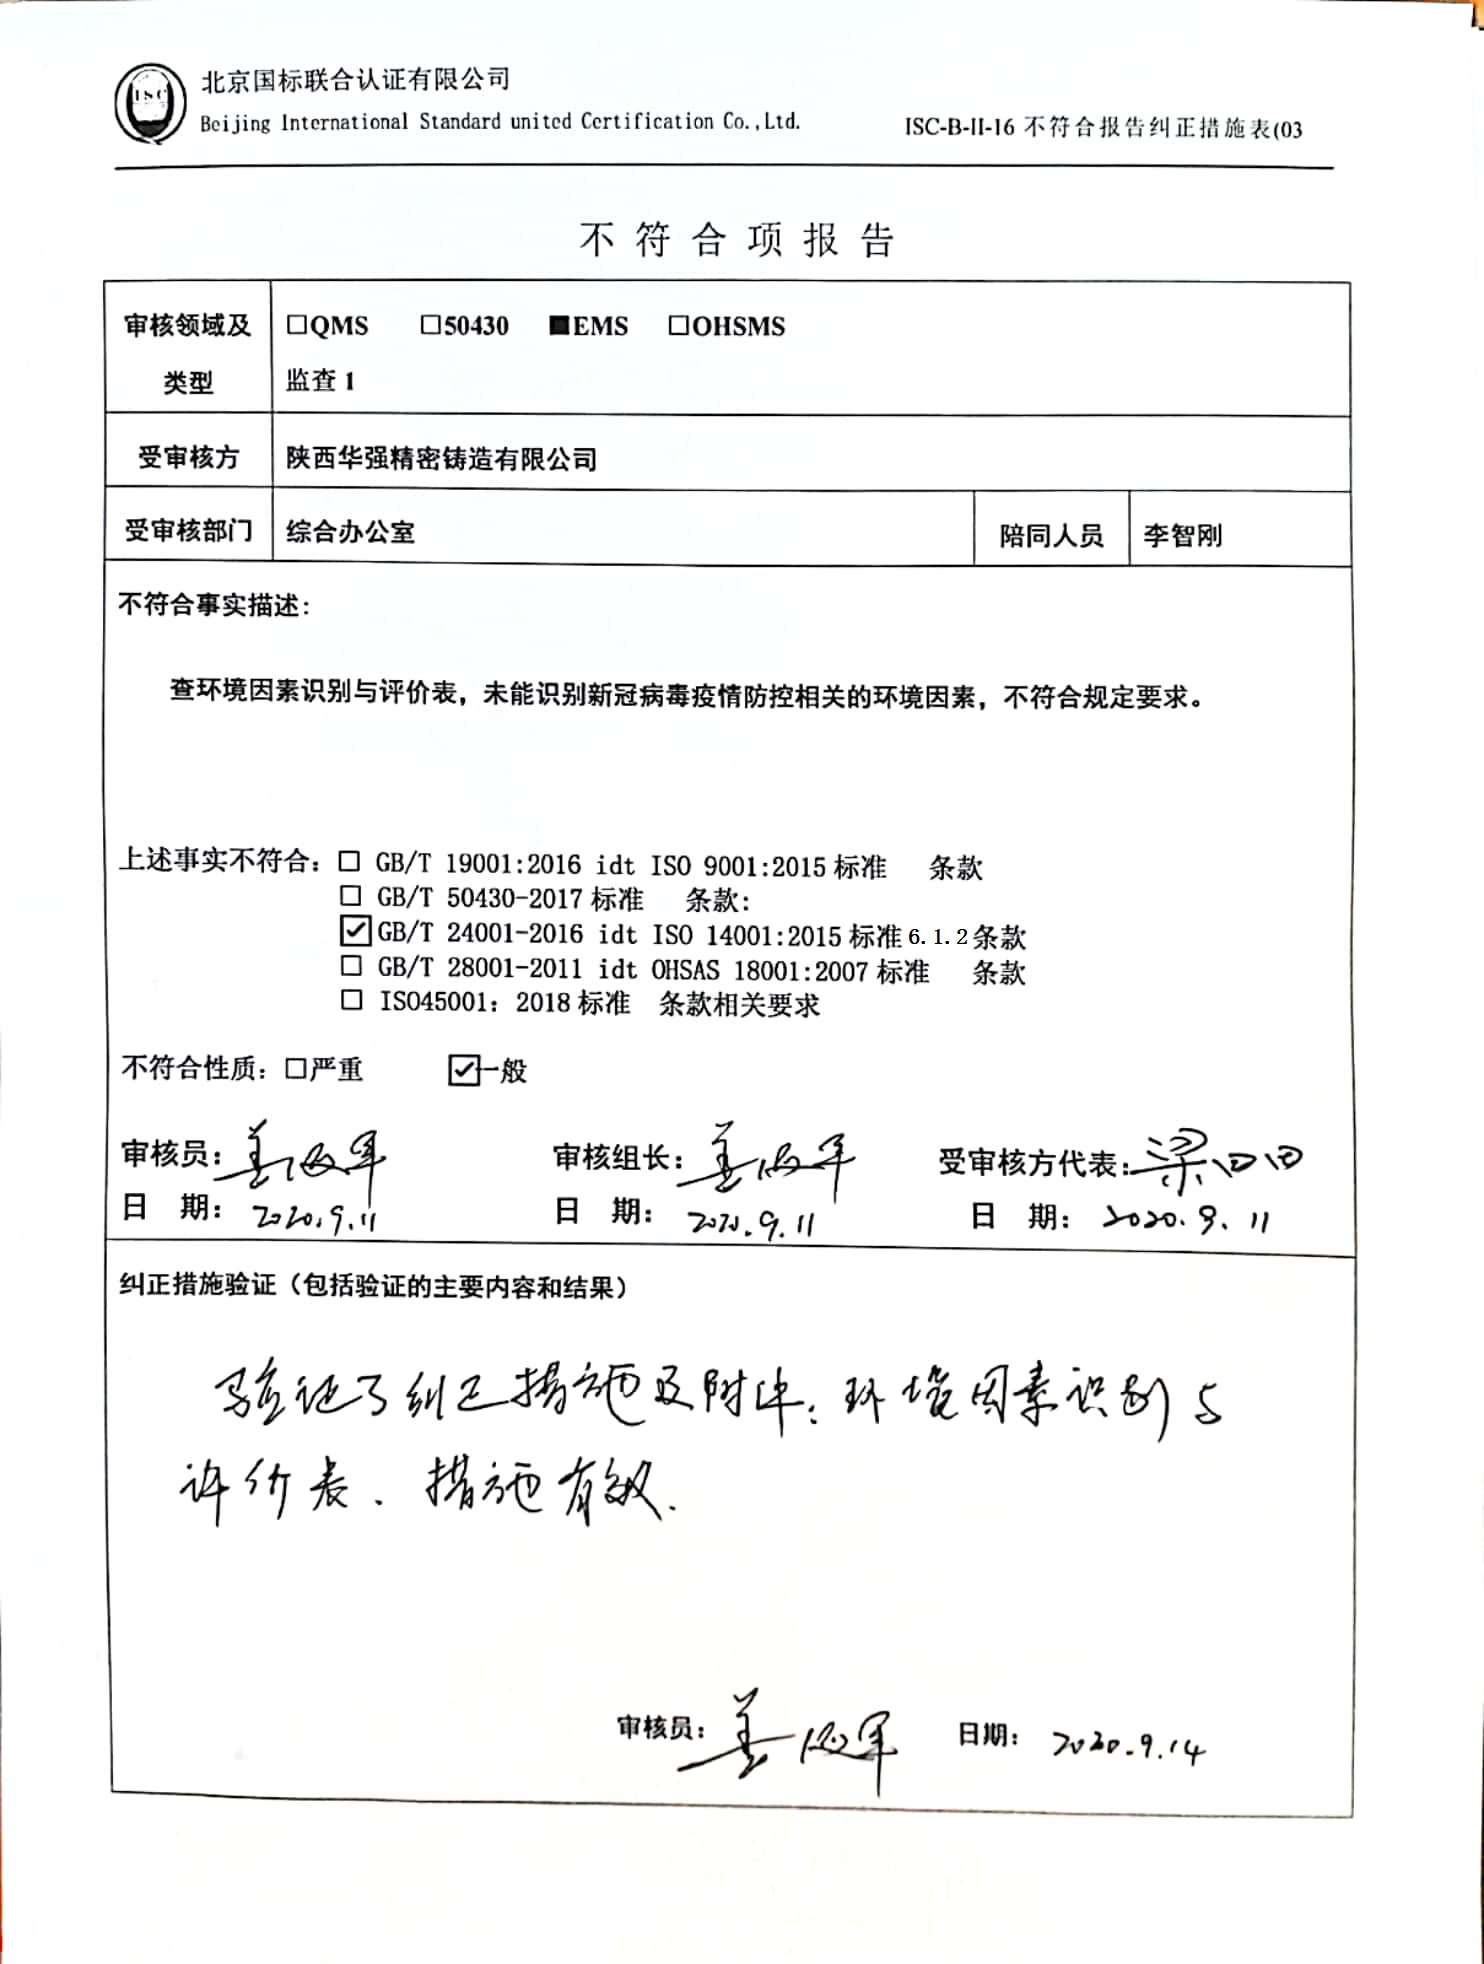 ISC
北京国标联合认证有限公司
Beijing International Standard united Certification Co.,Ltd.
ISC-B-II-16 不符合报告纠正措施表(03
不符合项报告
审核领域及
类型
□QMS □50430 ■EMS □OHSMS
监查 1
受审核方 陕西华强精密铸造有限公司
受审核部门 综合办公室 陪同人员 李智刚
不符合事实描述:
查环境因素识别与评价表，未能识别新冠病毒疫情防控相关的环境因素，不符合规定要求。
上述事实不符合: □ GB/T 19001:2016 idt ISO 9001:2015 标准 条款
□ GB/T 50430-2017 标准 条款:
☑ GB/T 24001-2016 idt ISO 14001:2015 标准 6.1.2 条款
□ GB/T 28001-2011 idt OHSAS 18001:2007 标准 条款
□ ISO45001: 2018 标准 条款相关要求
不符合性质: □严重 ☑一般
审核员: 审核组长: 受审核方代表:
日 期: 2020.9.11 日 期: 2020.9.11 日 期: 2020.9.11
纠正措施验证（包括验证的主要内容和结果）
验证了纠正措施及附件: 环境因素识别与
评价表. 措施有效.
审核员: 日期: 2020.9.14